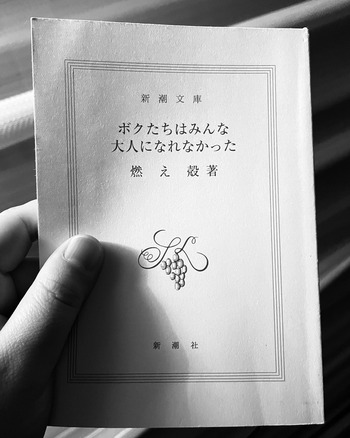 新潮文庫
ボクたちはみんな
大人になれなかった
燃え殻著
新潮社